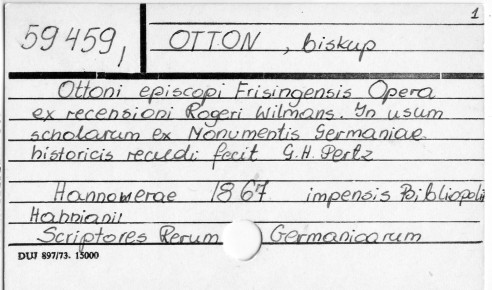 1
59459, OTTON, biskup
Ottoni episcopi Frisingensis Opera
ex recensioni Rogeri Wilmans. In usum
scholarum ex Monumentis Germaniae
historicis recudi fecit G.H. Pertz
Hannowerae 1867 impensis Bibliopoli
Hahniani
Scriptores Rerum Germanicarum
DUJ 897/73. 15000